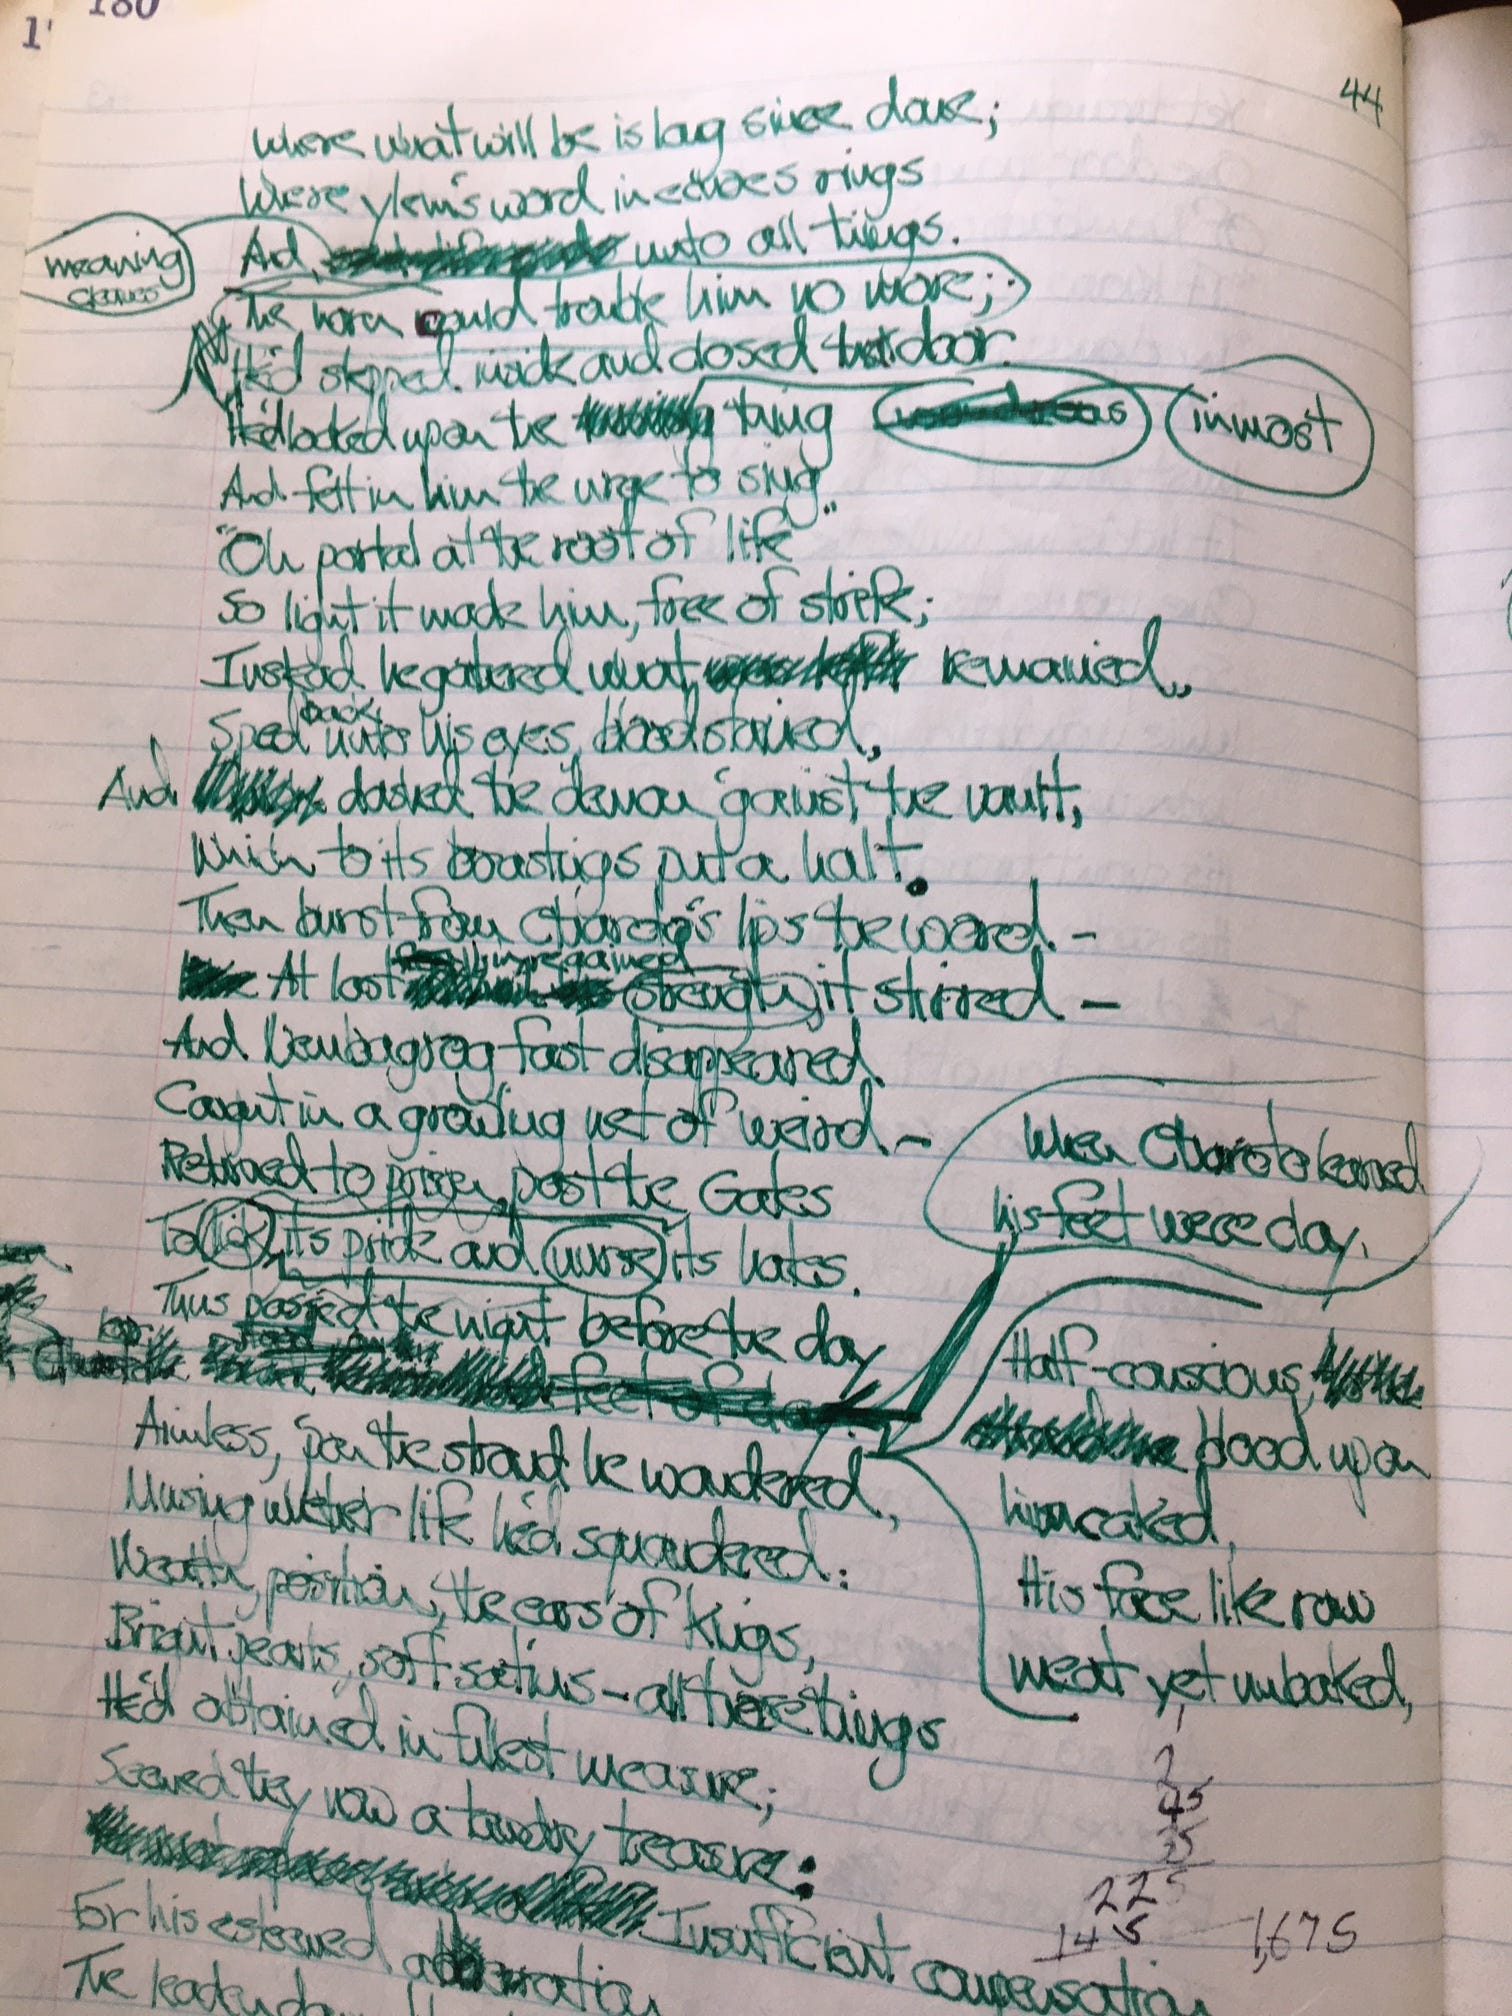 180
44
Where what will be is long since done;
Where ylem's word in echoes rings
And unto all things.
meaning
The horn could trouble him no more;
He'd stepped inside and closed that door.
He'd looked upon the thing
inmost
And felt in him the urge to sing
"Oh portal at the root of life"
So light it made him, free of strife;
Instead he gathered what remained,
back
Sped unto his eyes, bloodstained,
And dashed the demon 'gainst the vault,
Which to its boastings put a halt.
Then burst from Charoto's lips the word –
in regained
At last strength, it stirred –
And fast disappeared
Caught in a growing net of weird –
Returned to prison, past the Gates
When Charoto learned
his feet were day,
To lick its pride and nurse its hates.
Thus passed the night before the day
feet of
Half-conscious,
blood upon
him caked,
His face like raw
meat yet unbaked,
Aimless, 'pon the strand he wandered,
Musing whether life he'd squandered:
Wealth, position, the ears of kings,
Bright pearls, soft satins – all these things
He'd obtained in fullest measure;
Seemed they now a tawdry treasure:
Insufficient compensation
For his esteemed
The
2
45
35
225
145
1,675